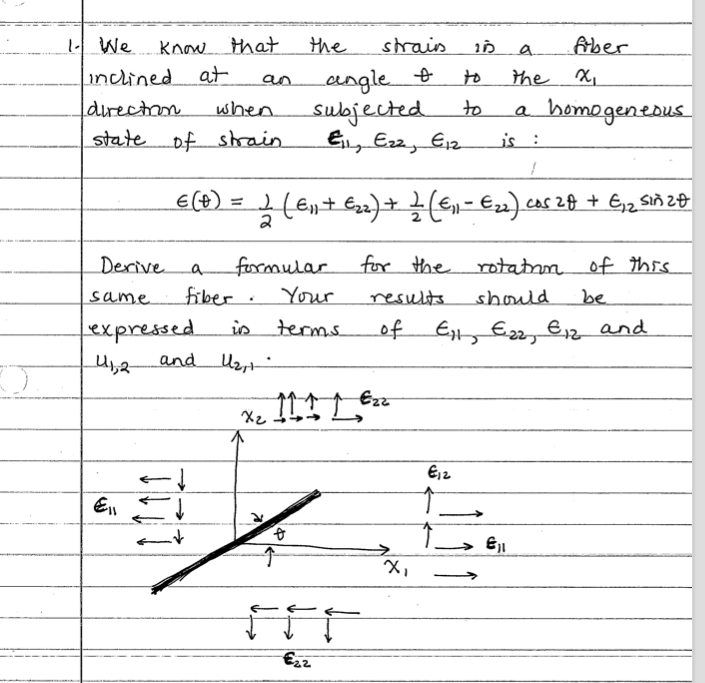 1. We know that the strain in a fiber
inclined at an angle θ to the x₁
direction when subjected to a homogeneous
state of strain ε₁₁, ε₂₂, ε₁₂ is :
ε(θ) = 1/2 (ε₁₁ + ε₂₂) + 1/2 (ε₁₁ - ε₂₂) cos 2θ + ε₁₂ sin 2θ
Derive a formular for the rotation of this
same fiber. Your results should be
expressed in terms of ε₁₁, ε₂₂, ε₁₂ and
u₁,₂ and u₂,₁.
x₂ ε₂₂
ε₁₂
ε₁₁
θ
ε₁₁
x₁
ε₂₂